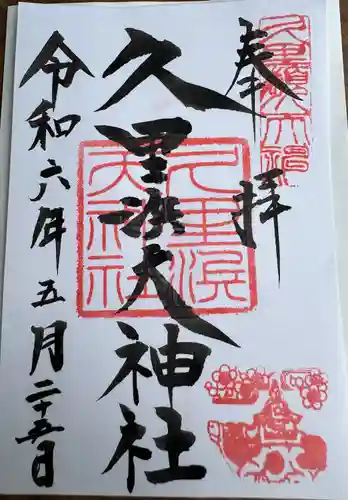 奉拝
久里浜天神社
令和六年五月二十五日
久里濱天神
久里浜天神社